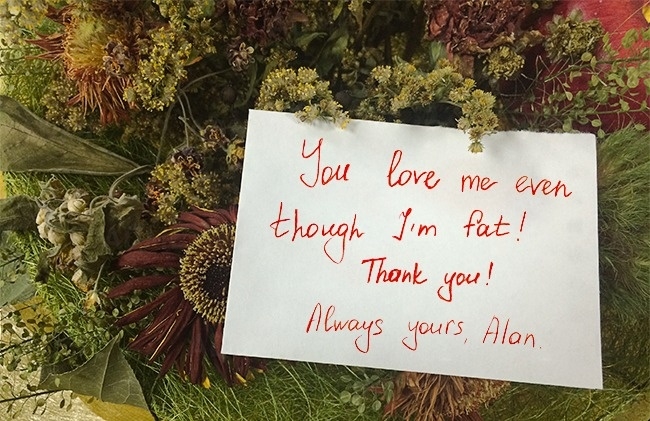 You love me even
though I'm fat!
Thank you!
Always yours, Alan.